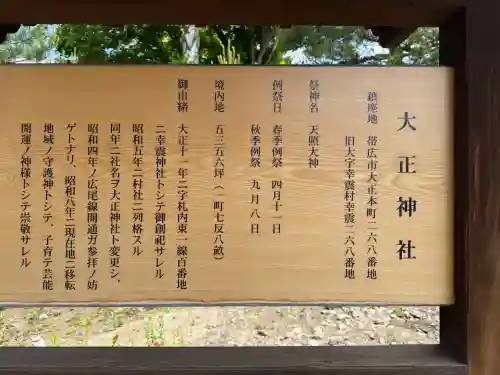 大正神社
鎮座地 帯広市大正本町二六八番地
旧大字幸震村幸震二六八番地
祭神名 天照大神
例祭日 春季例祭 四月十一日
秋季例祭 九月八日
境内地 五三五六坪(一町七反八畝)
御由緒 大正十一年ニ字札内東一線百番地
ニ幸震神社トシテ御創祀サレル
昭和五年ニ村社ニ列格スル
同年ニ社名ヲ大正神社ト変更シ、
昭和四年ノ広尾線開通ガ参拝ノ妨
ゲトナリ、昭和八年ニ現在地ニ移転
地域ノ守護神トシテ、子育テ芸能
開運ノ神様トシテ崇敬サレル